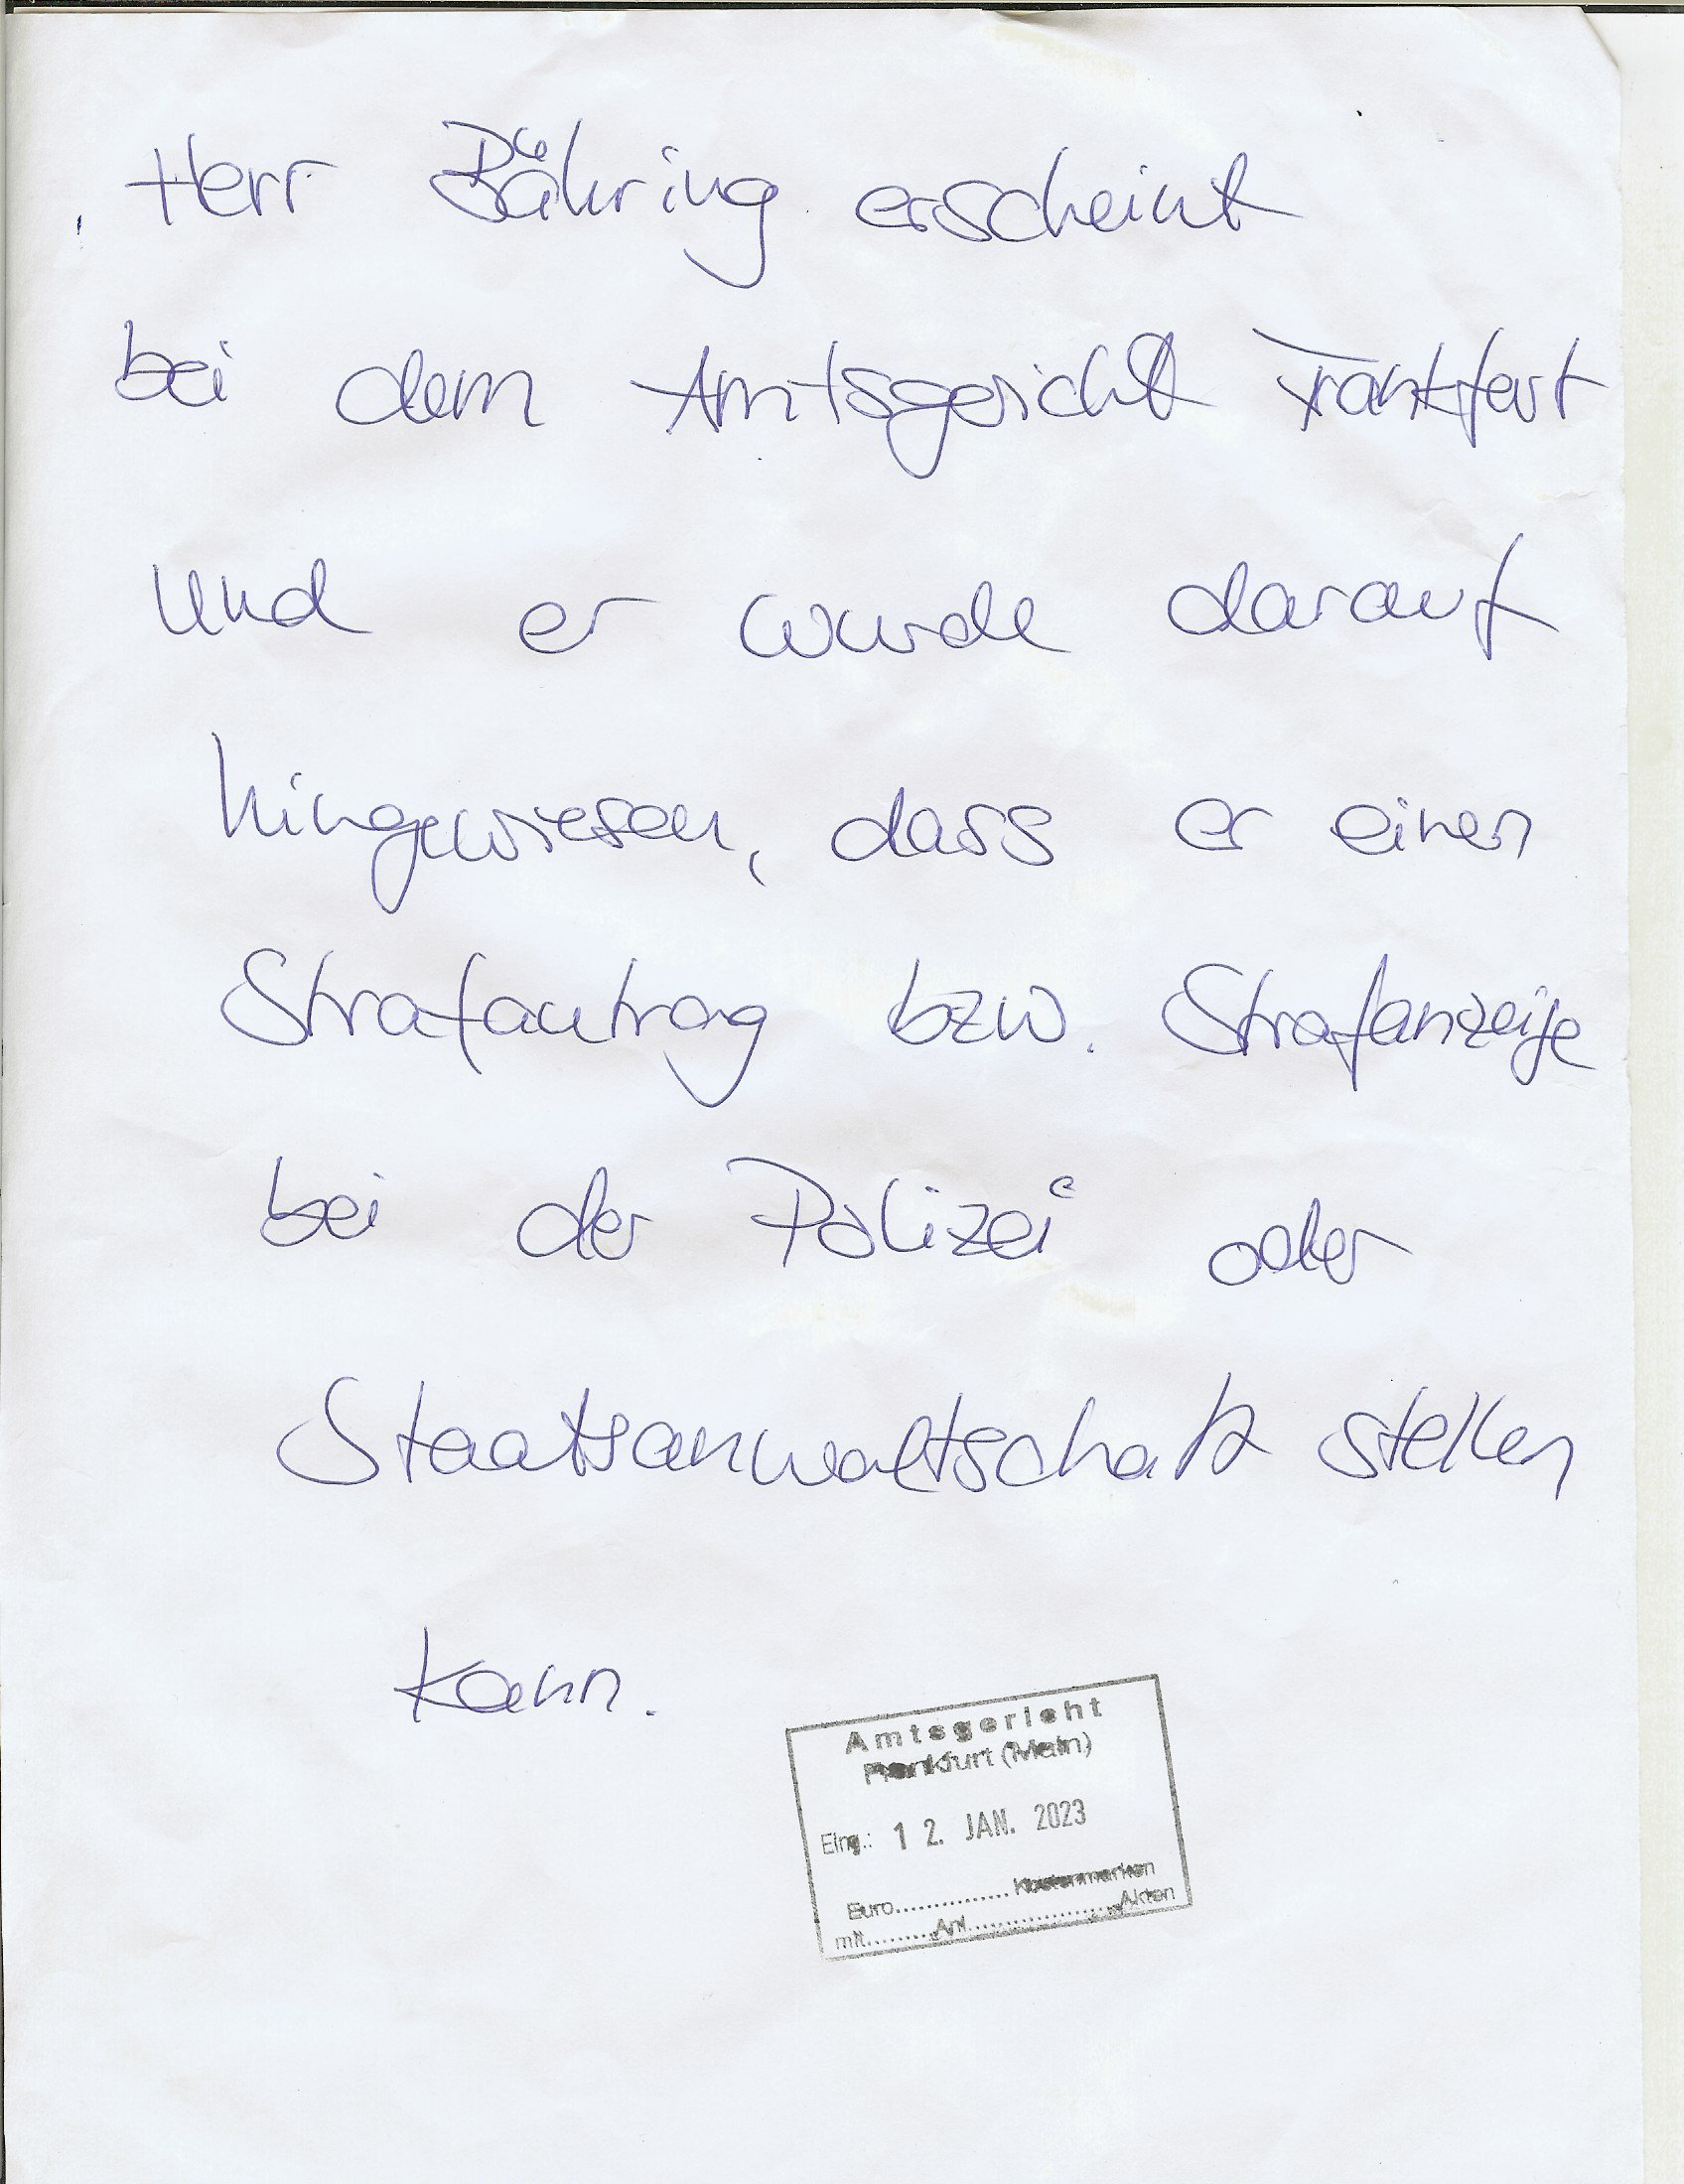 Herr Bähring erscheint
bei dem Amtsgericht Frankfurt
und er wurde darauf
hingewiesen, dass er einen
Strafantrag bzw. Strafanzeige
bei der Polizei oder
Staatsanwaltschaft stellen
kann.
Amtsgericht
Frankfurt (Main)
Eing.: 12. JAN. 2023
Euro.............. Kostenmarken
mit.........Anl...................Akten